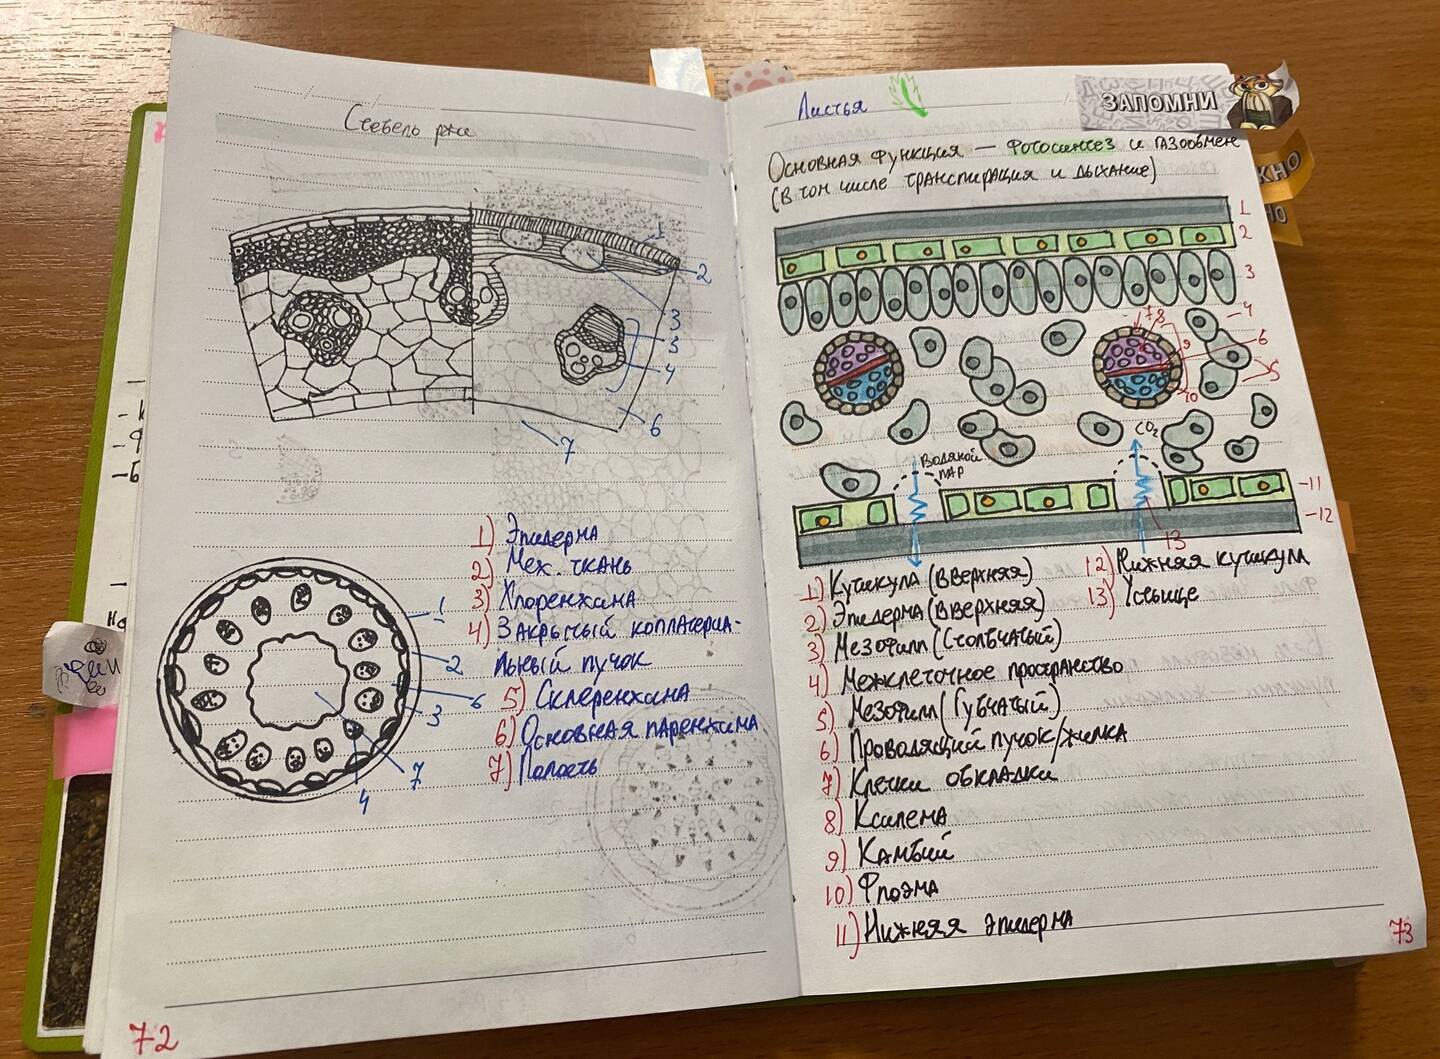 Стебель ржи
1
2
3
5
4
6
7
1) Эпидерма
2) Мех. ткань
3) Хлоренхима
4) Закрытый коллатериа-
льный пучок
5) Склеренхима
6) Основная паренхима
7) Полость
1
2
6
3
7
4
72
Листья
ЗАПОМНИ
Основная функция — фотосинтез и газообмен
(в том числе транспирация и дыхание)
1
2
3
4
7 8
9
6
5
10
CO2
Водяной
пар
11
12
13
1) Кутикула (вверхняя)
2) Эпидерма (вверхняя)
3) Мезофилл (столбчатый)
4) Межклеточное пространство
5) Мезофилл (губчатый)
6) Проводящий пучок/жилка
7) Клетки обкладки
8) Ксилема
9) Камбий
10) Флоэма
11) Нижняя эпидерма
12) Нижняя кутикула
13) Устьице
73